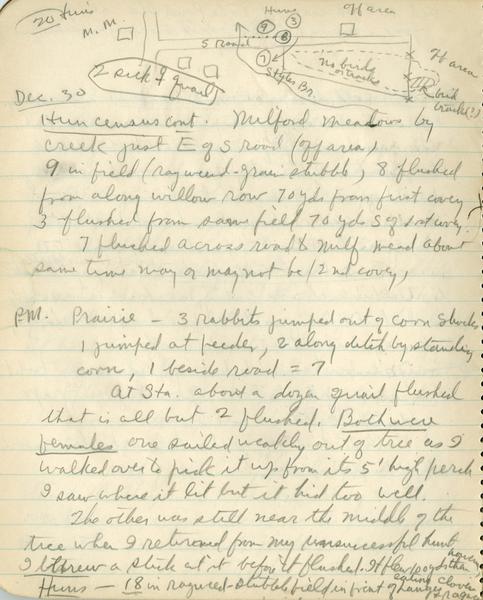 20 Huns
M. M.
Huns
off area
9
3
8
7
S Road
Styles Br.
no birds
or tracks
off area
bird
tracks(?)
2 sick quail
Dec. 30
Hun census cont. Milford Meadows by
creek just E of S road (off area)
9 in field (ragweed-grain stubble, 8 flushed
from along willow row 70 yds from first covey
3 flushed from same field 70 yds S of 1st covey.
7 flushed across road & Milf mead about
same time may or may not be (2nd covey)
P.M. Prairie - 3 rabbits jumped out of corn shocks
1 jumped at feeder, 2 along ditch by standing
corn, 1 beside road = 7
At Sta. about a dozen quail flushed
that is all but 2 flushed. Both were
females one sailed weakly out of tree as I
walked over to pick it up from its 5' high perch
I saw where it lit but it hid too well.
The other was still near the middle of the
tree when I returned from my unsuccessful hunt
I threw a stick at it before it flushed. It flew
Huns - 18 in ragweed-stubble field in front of
eating clover
& ragweed